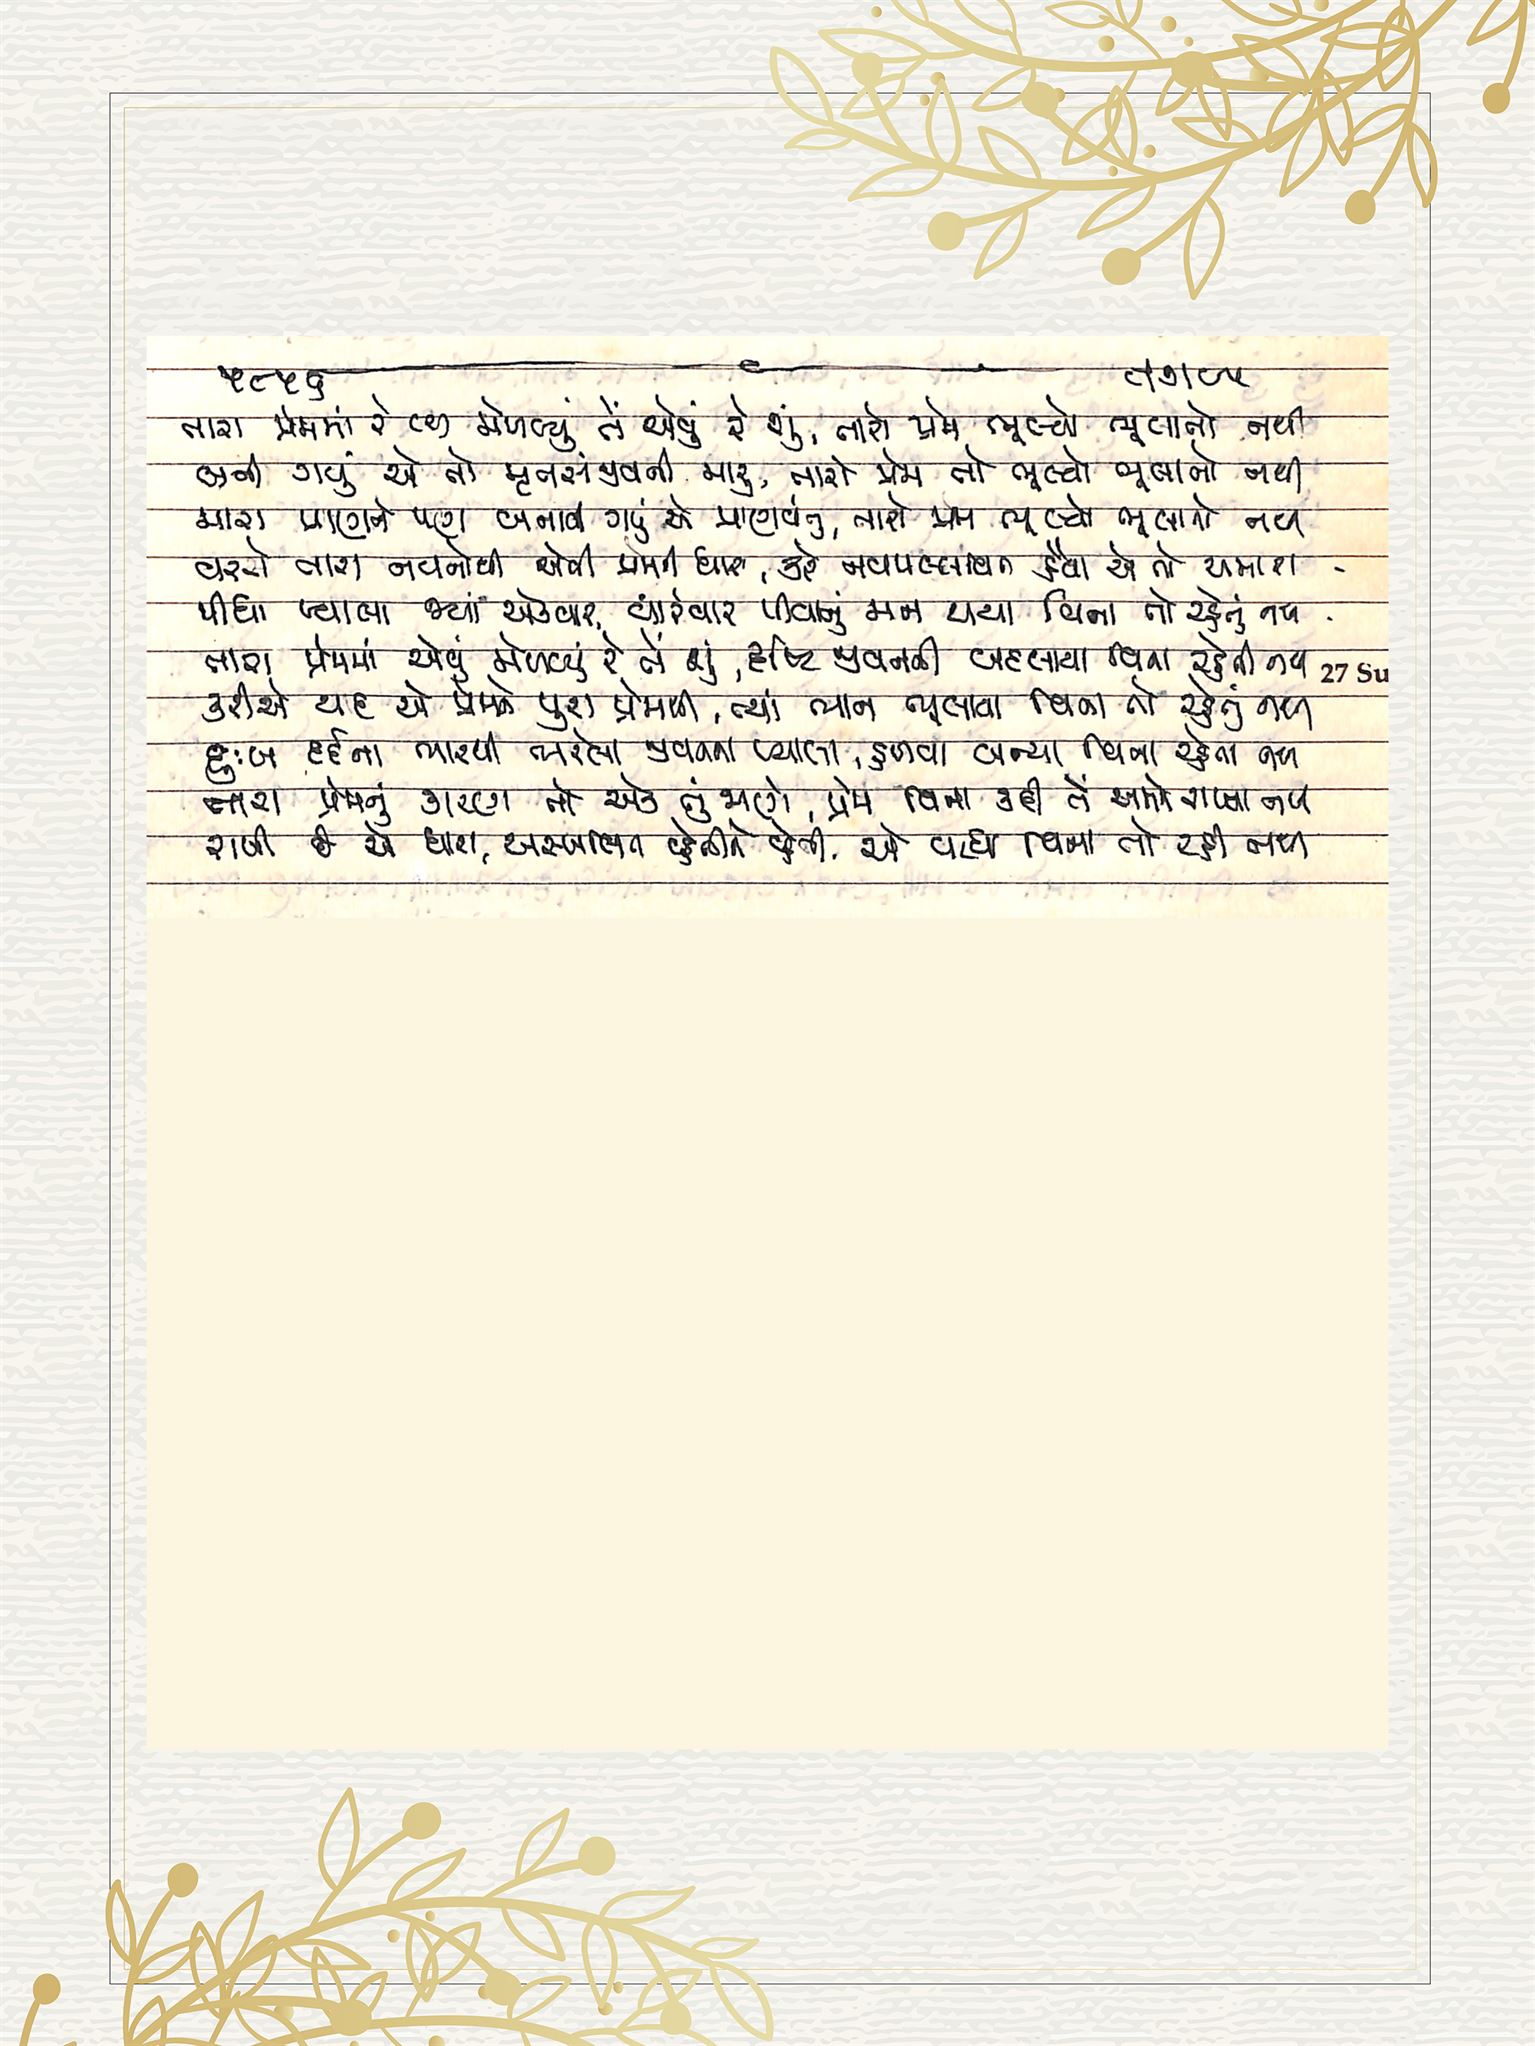 ૫૮૫૬
તારા પ્રેમમાં રે મેળવ્યું તેં એવું રે શું, તારો પ્રેમ ભૂલ્યો ભૂલાતો નથી
બની ગયું એ તો મૃતસંજીવની મારુ, તારો પ્રેમ તો ભૂલ્યો ભૂલાતો નથી
મારા પ્રાણને પણ બનાવી ગયું એ પ્રાણવંતુ, તારો પ્રેમ ભૂલ્યો ભૂલાતો નથી
વરસે તારા નયનોથી એવી પ્રેમની ધારા, કરે નવપલ્લવિત હૈયા એ તો અમારા
પીધા પ્યાલા જ્યાં એકવાર, વારંવાર પીવાનું મન થયા વિના તો રહેતું નથી
તારા પ્રેમમાં એવું મેળવ્યું રે તેં શું, દૃષ્ટિ જીવનની બદલાયા વિના રહેતી નથી 27 Su
કરીએ યાદ એ પ્રેમને પુરા પ્રેમથી, ત્યાં ભાન ભૂલાયા વિના તો રહેતું નથી
દુઃખ દર્દના ભારથી ભરેલા જીવનના પ્યાલા, હળવા બન્યા વિના રહેતા નથી
તારા પ્રેમનું કારણ તો એક તું જાણે, પ્રેમ વિના કદી તેં અમને રાખ્યા નથી
રાખી છે એ ધારા, અસ્ખલિત વહેતીને વહેતી, એ વહ્યા વિના તો રહી નથી